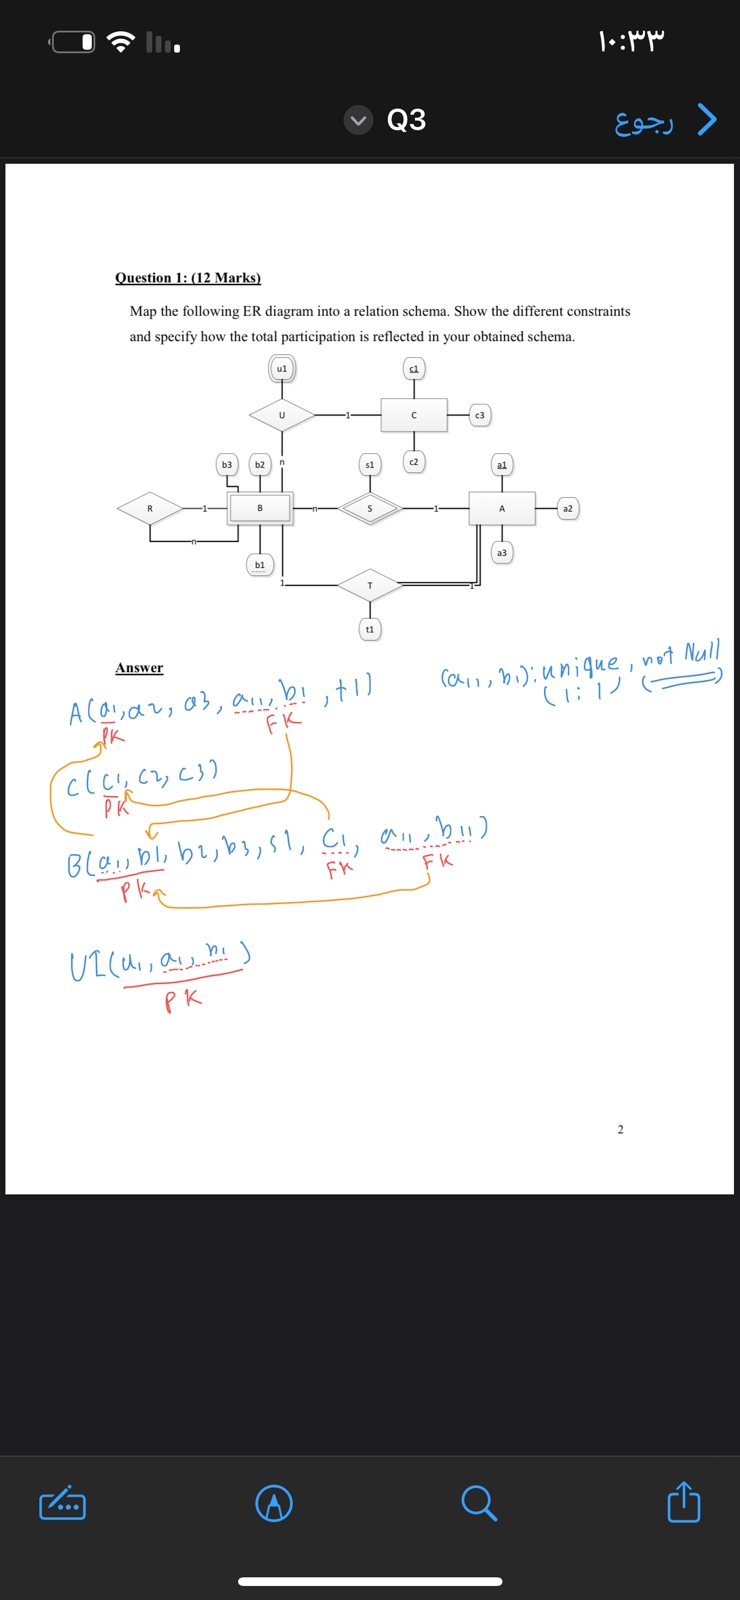 ١٠:٣٣
Q3
رجوع
Question 1: (12 Marks)
Map the following ER diagram into a relation schema. Show the different constraints
and specify how the total participation is reflected in your obtained schema.
u1
c1
U
1
C
c3
b3
b2
n
s1
c2
a1
R
1
B
n
S
1
A
a2
n
b1
a3
1
T
1
t1
Answer
(a11, b1): unique, not Null
(1:1)
A(a1, a2, a3, a11, b1, t1)
PK
FK
C(C1, C2, C3)
PK
B(a11, b1, b2, b3, s1, C1, a11, b11)
PK
FK
FK
U1(u1, a1, b1)
PK
2